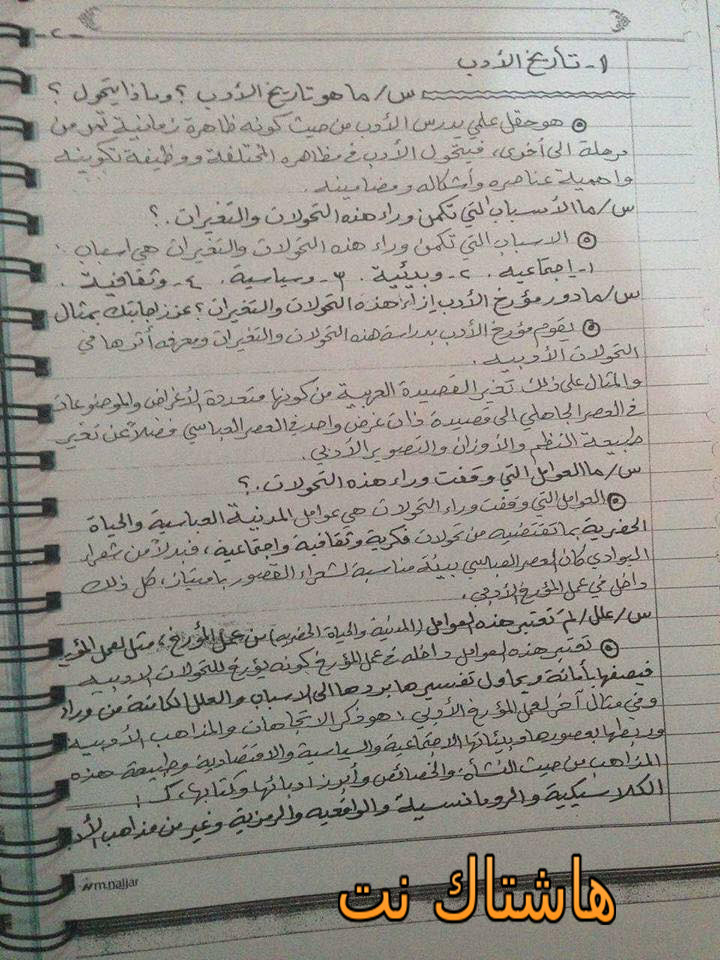 -٢-
١- تأريخ الأدب
س/ ما هو تأريخ الأدب ؟ وماذا يتحول ؟
هو حقل علمي يدرس الأدب من حيث كونه ظاهرة زمانية تمر من
مرحلة الى أخرى، فيتحول الأدب في مظاهره المختلفة ووظيفة تكوينه
واهمية عناصره وأشكاله ومضامينه.
س/ ما الأسباب التي تكمن وراء هذه التحولات والتغيرات . ؟
الاسباب التي تكمن وراء هذه التحولات والتغيرات هي اسباب :
١- إجتماعيه . ٢- وبيئية . ٣- وسياسية . ٤- وثقافية .
س/ ما دور مؤرخ الأدب إزاء هذه التحولات والتغيرات ؟ عزز اجابتك بمثال
يقوم مؤرخ الأدب بدراسة هذه التحولات والتغيرات ومعرفه أثرها في
التحولات الأدبيه .
والمثال على ذلك تغير القصيدة العربية من كونها متعددة الأغراض والموضوعات
في العصر الجاهلي الى قصيدة ذات غرض واحد في العصر العباسي فضلاً عن تغير
طبيعة النظم والأوزان والتصوير الأدبي.
س/ ما العوامل التي وقفت وراء هذه التحولات . ؟
العوامل التي وقفت وراء التحولات هي عوامل المدنية العباسية والحياة
الحضرية بما تقتضيه من تحولات فكرية وثقافية وإجتماعية ، فبدلاً من شعراء
البوادي كان العصر العباسي بيئة مناسبة لشعراء القصور بامتياز، كل ذلك
داخل في عمل المؤرخ الأدبي.
س/ علل/ لم تعتبر هذه العوامل (المدنية والحياة الحضريه) من عمل المؤرخ ، مثل لعمل المؤرخ
تعتبر هذه العوامل داخله في عمل المؤرخ كونه يؤرخ للتحولات الادبيه
فيصفها بأمانة ويحاول تفسيرها بردها الى الاسباب والعلل الكامنة من وراء
وفي مثال آخر لعمل المؤرخ الأدبي : هو ذكر الاتجاهات والمذاهب الأدبيه
وربطها بعصورها وبيئاتها الاجتماعية والسياسية والاقتصادية وطبيعة هذه
المذاهب من حيث النشأة والخصائص وأبرز ادبائها وكتابها، كـ :
الكلاسيكية والرومانسية والواقعيه والرمزية وغير من مذاهب الأدب
m.najjar
هاشتاك نت